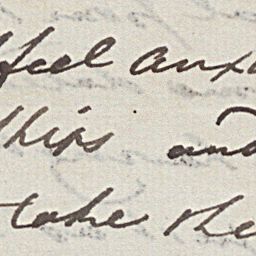 feel anx
ships and
take the